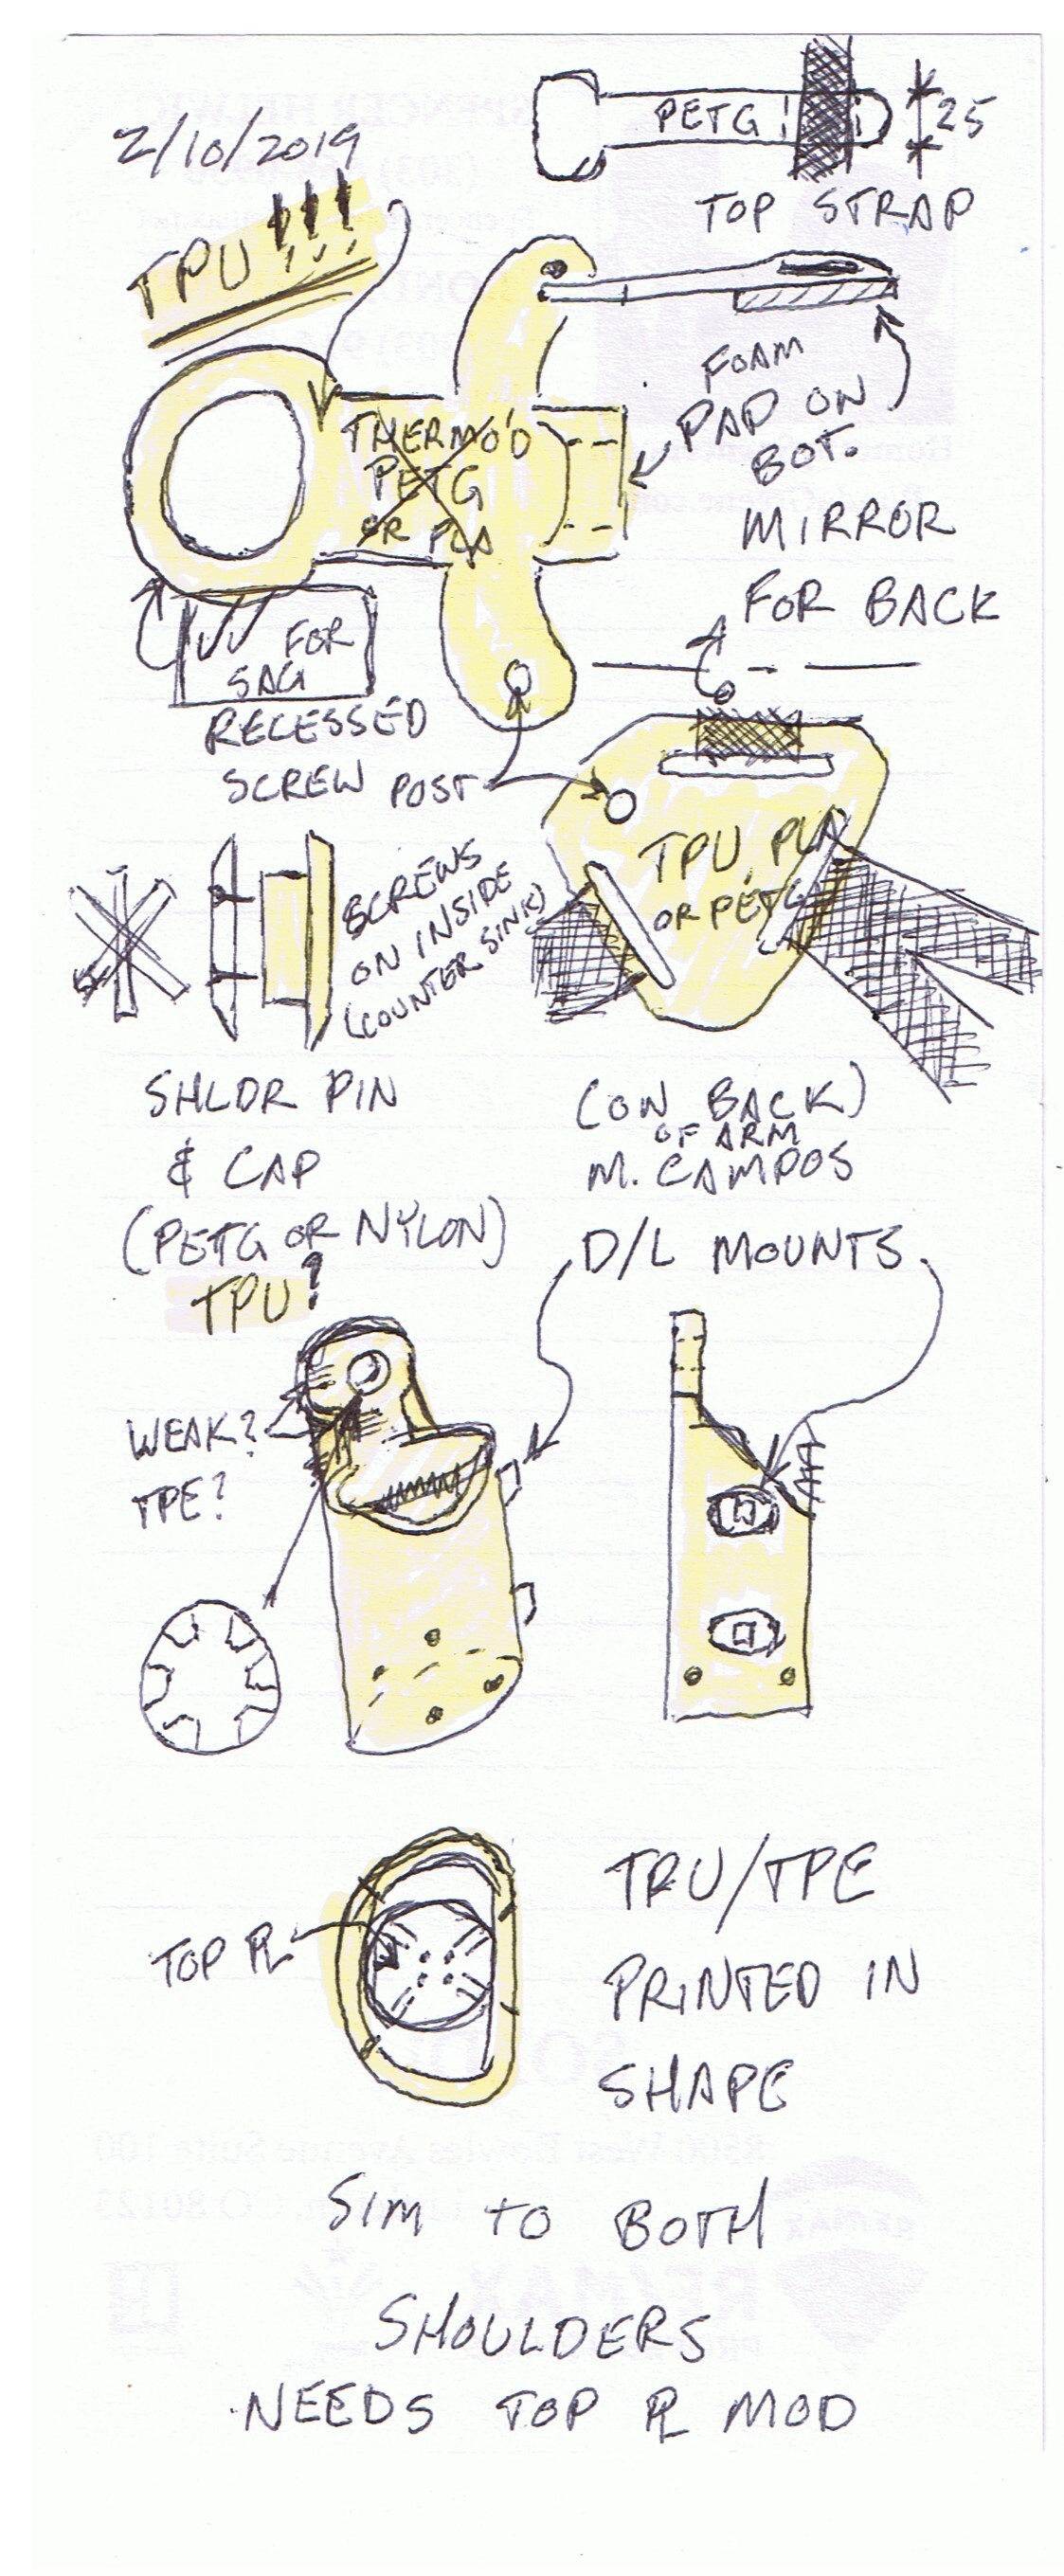 2/10/2019
PETG
25
TOP STRAP
TPU!!!
FOAM
PAD ON
BOT.
MIRROR
FOR BACK
THERMO'D
PETG
OR PLA
FOR
SAG
RECESSED
SCREW POST
SCREWS
ON INSIDE
(COUNTER SINK)
TPU, PLA
OR PETG
SHLDR PIN
& CAP
(PETG OR NYLON)
TPU?
(ON BACK)
OF ARM
M. CAMPOS
D/L MOUNTS
WEAK?
TPE?
TOP PL
TPU/TPE
PRINTED IN
SHAPE
SIM TO BOTH
SHOULDERS
NEEDS TOP PL MOD